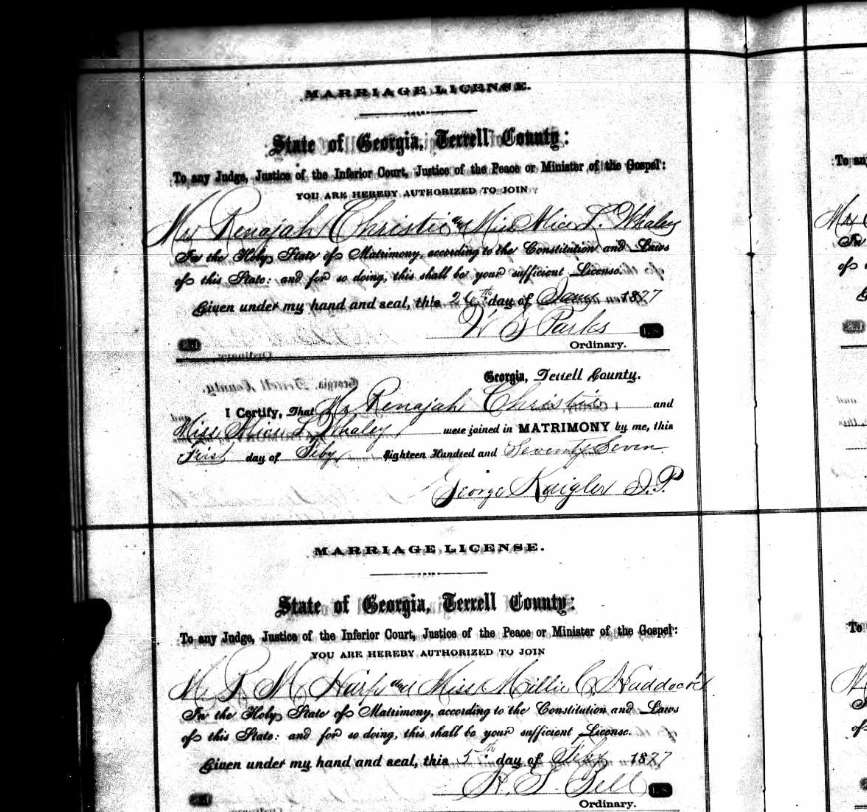 MARRIAGE LICENSE.
State of Georgia, Terrell County:
To any Judge, Justice of the Inferior Court, Justice of the Peace or Minister of the Gospel:
YOU ARE HEREBY AUTHORIZED TO JOIN
Mr Renajah Christie and Miss Alice L. Whaley
In the Holy State of Matrimony, according to the Constitution and Laws
of this State: and for so doing, this shall be your sufficient License.
Given under my hand and seal, this 26th day of Jany 1877
Parks
L S
Ordinary.
Georgia, Terrell County.
I Certify, That Mr Renajah Christie and
Miss Alice L Whaley were joined in MATRIMONY by me, this
First day of Feby Eighteen Hundred and Seventy Seven.
George Kaigler J. P.
MARRIAGE LICENSE.
State of Georgia, Terrell County:
To any Judge, Justice of the Inferior Court, Justice of the Peace or Minister of the Gospel:
YOU ARE HEREBY AUTHORIZED TO JOIN
Mr M and Miss Millie C Haddock
In the Holy State of Matrimony, according to the Constitution and Laws
of this State: and for so doing, this shall be your sufficient License.
Given under my hand and seal, this 5th day of Feby 1877
L S
Ordinary.